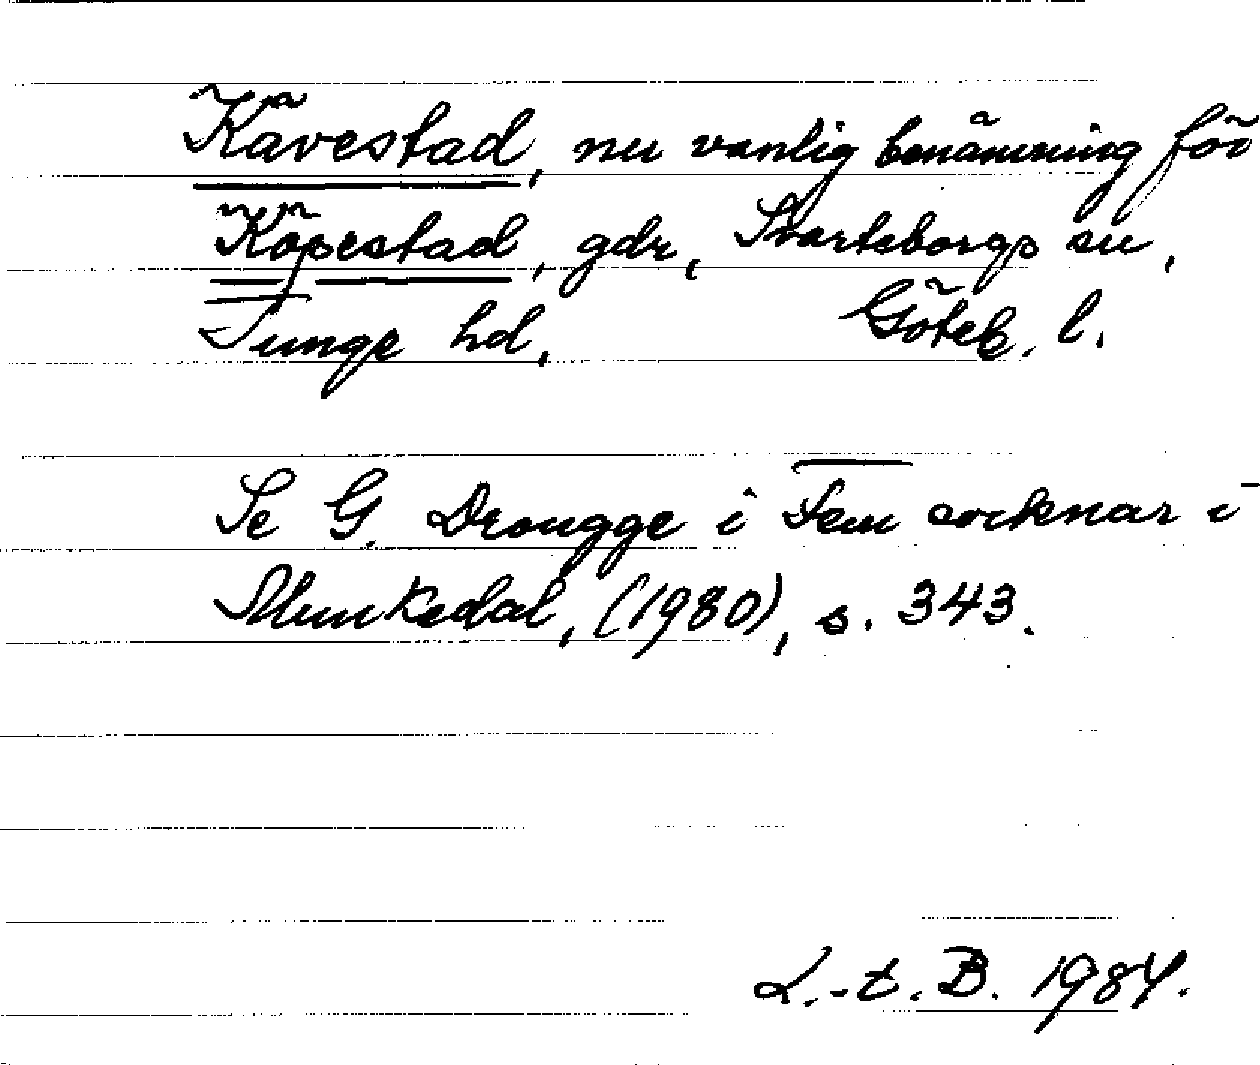 Kävestad, nu vanlig benämning för
Köpestad, gdr, Svarteborgs sn,
Tunge hd, Göteb. l.
Se G. Drougge i Fem socknar i
Munkedal, (1980), s. 343.
L.-t. B. 1984.